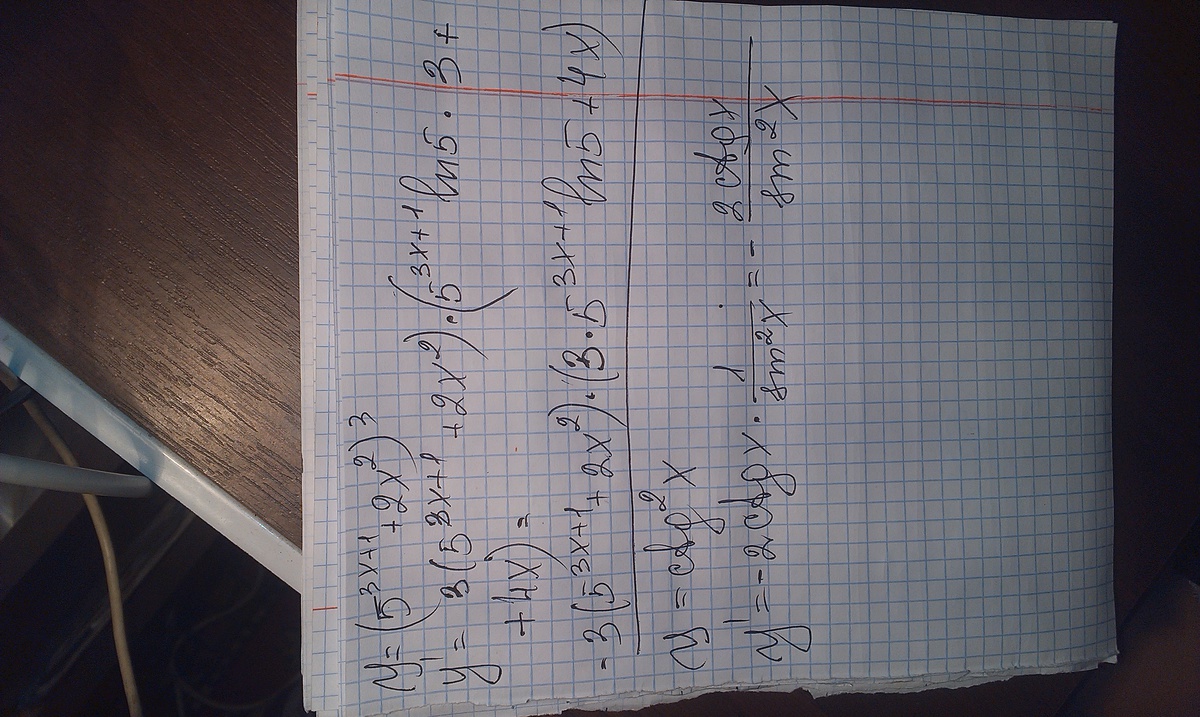 y = (5^{3x+1} + 2x^2)^3
y' = 3(5^{3x+1} + 2x^2) · (5^{3x+1} ln5 · 3 +
+ 4x) =
= 3(5^{3x+1} + 2x^2) · (3 · 5^{3x+1} ln5 + 4x)
y = ctg^2 x
y' = -2ctgx · 1/sin^2x = - 2ctgx/sin^2x